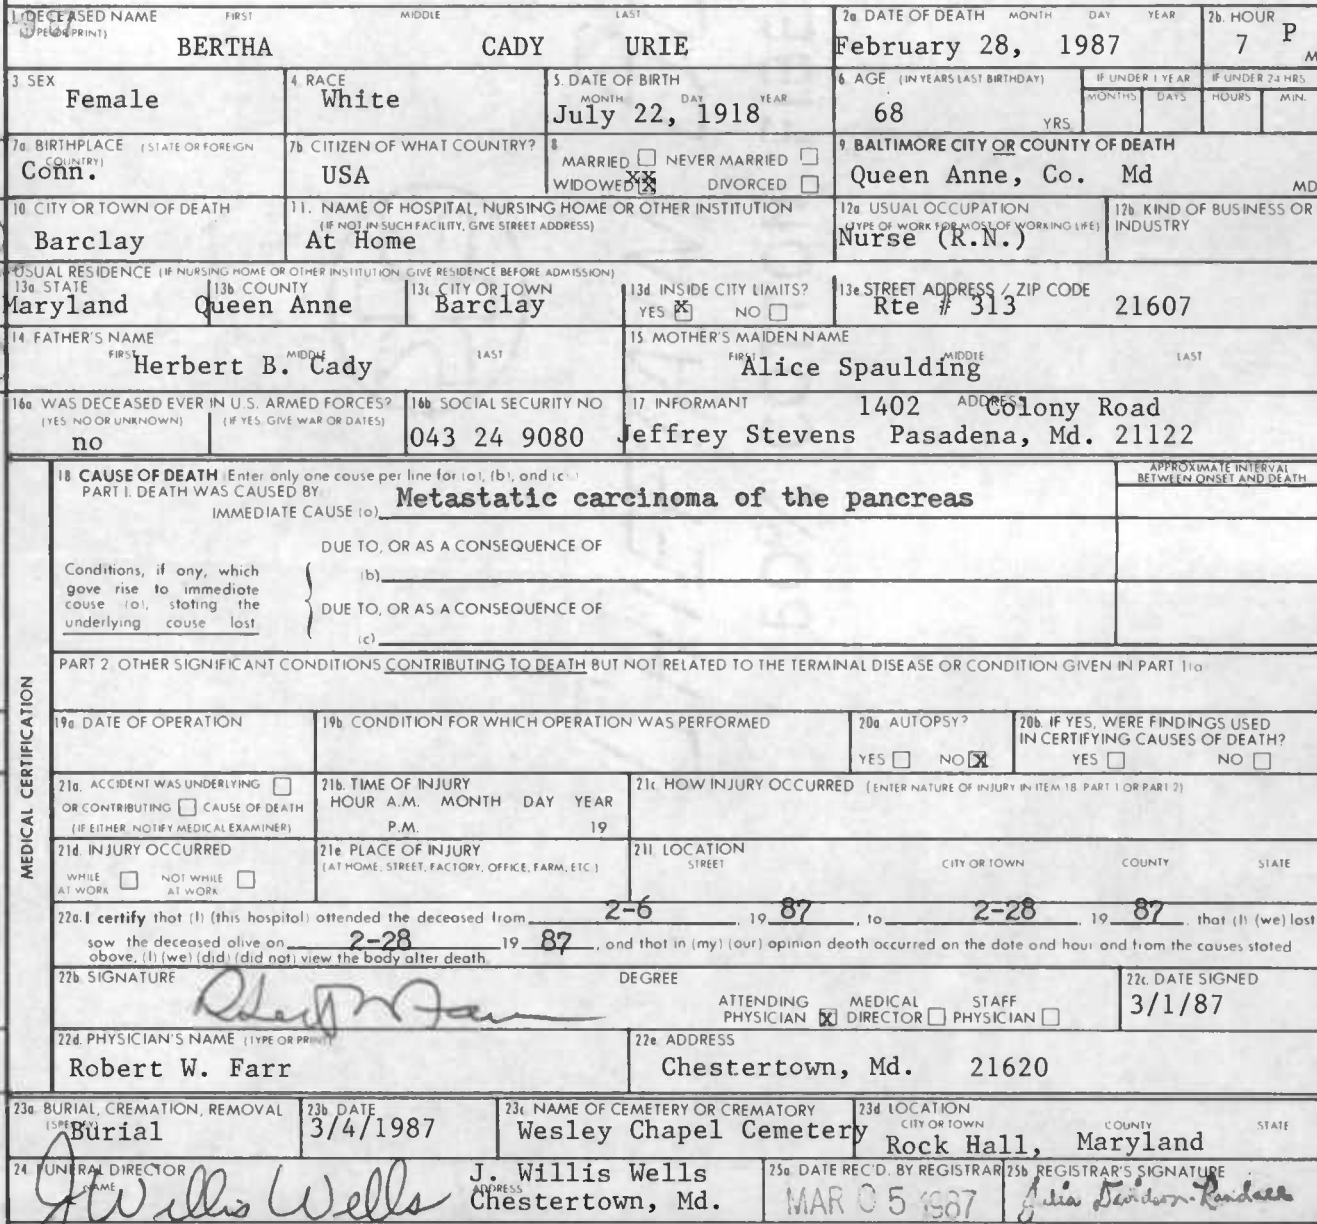 1. DECEASED NAME FIRST MIDDLE LAST
(TYPE OR PRINT)
BERTHA CADY URIE
2a DATE OF DEATH MONTH DAY YEAR
February 28, 1987
2b. HOUR
7 P M
3 SEX
Female
4. RACE
White
5. DATE OF BIRTH
MONTH DAY YEAR
July 22, 1918
6 AGE (IN YEARS LAST BIRTHDAY)
68 YRS
IF UNDER 1 YEAR
MONTHS DAYS
IF UNDER 24 HRS
HOURS MIN.
7a BIRTHPLACE (STATE OR FOREIGN COUNTRY)
Conn.
7b CITIZEN OF WHAT COUNTRY?
USA
8
MARRIED NEVER MARRIED
WIDOWED XX X DIVORCED
9 BALTIMORE CITY OR COUNTY OF DEATH
Queen Anne, Co. Md MD
10 CITY OR TOWN OF DEATH
Barclay
11. NAME OF HOSPITAL, NURSING HOME OR OTHER INSTITUTION
(IF NOT IN SUCH FACILITY, GIVE STREET ADDRESS)
At Home
12a USUAL OCCUPATION
(TYPE OF WORK FOR MOST OF WORKING LIFE)
Nurse (R.N.)
12b KIND OF BUSINESS OR INDUSTRY
USUAL RESIDENCE (IF NURSING HOME OR OTHER INSTITUTION GIVE RESIDENCE BEFORE ADMISSION)
13a STATE
Maryland
13b COUNTY
Queen Anne
13c CITY OR TOWN
Barclay
13d INSIDE CITY LIMITS?
YES X NO
13e STREET ADDRESS / ZIP CODE
Rte # 313 21607
14 FATHER'S NAME
FIRST MIDDLE LAST
Herbert B. Cady
15 MOTHER'S MAIDEN NAME
FIRST MIDDLE LAST
Alice Spaulding
16a WAS DECEASED EVER IN U.S. ARMED FORCES?
(YES NO OR UNKNOWN) (IF YES, GIVE WAR OR DATES)
no
16b SOCIAL SECURITY NO
043 24 9080
17 INFORMANT ADDRESS
1402 Colony Road
Jeffrey Stevens Pasadena, Md. 21122
MEDICAL CERTIFICATION
18 CAUSE OF DEATH (Enter only one cause per line for (a), (b), and (c))
PART I. DEATH WAS CAUSED BY
IMMEDIATE CAUSE (a) Metastatic carcinoma of the pancreas
APPROXIMATE INTERVAL
BETWEEN ONSET AND DEATH
DUE TO, OR AS A CONSEQUENCE OF
(b)
Conditions, if any, which
gave rise to immediate
cause (a), stating the
underlying cause last
DUE TO, OR AS A CONSEQUENCE OF
(c)
PART 2 OTHER SIGNIFICANT CONDITIONS CONTRIBUTING TO DEATH BUT NOT RELATED TO THE TERMINAL DISEASE OR CONDITION GIVEN IN PART 1(a)
19a DATE OF OPERATION
19b CONDITION FOR WHICH OPERATION WAS PERFORMED
20a AUTOPSY?
YES NO X
20b. IF YES, WERE FINDINGS USED
IN CERTIFYING CAUSES OF DEATH?
YES NO
21a. ACCIDENT WAS UNDERLYING
OR CONTRIBUTING CAUSE OF DEATH
(IF EITHER, NOTIFY MEDICAL EXAMINER)
21b. TIME OF INJURY
HOUR A.M. MONTH DAY YEAR
P.M. 19
21c HOW INJURY OCCURRED (ENTER NATURE OF INJURY IN ITEM 18 PART 1 OR PART 2)
21d. INJURY OCCURRED
WHILE AT WORK NOT WHILE AT WORK
21e PLACE OF INJURY
(AT HOME, STREET, FACTORY, OFFICE, FARM, ETC)
21f. LOCATION
STREET CITY OR TOWN COUNTY STATE
22a. I certify that (I) (this hospital) attended the deceased from 2-6 19 87, to 2-28, 19 87, that (I) (we) last
saw the deceased alive on 2-28 19 87, and that in (my) (our) opinion death occurred on the date and hour and from the causes stated
above, (I) (we) (did) (did not) view the body after death
22b SIGNATURE
Robert W Farr
DEGREE
ATTENDING PHYSICIAN X MEDICAL DIRECTOR STAFF PHYSICIAN
22c. DATE SIGNED
3/1/87
22d. PHYSICIAN'S NAME (TYPE OR PRINT)
Robert W. Farr
22e ADDRESS
Chestertown, Md. 21620
23a BURIAL, CREMATION, REMOVAL
(SPECIFY)
Burial
23b DATE
3/4/1987
23c NAME OF CEMETERY OR CREMATORY
Wesley Chapel Cemetery
23d LOCATION
CITY OR TOWN COUNTY STATE
Rock Hall, Maryland
24 FUNERAL DIRECTOR
NAME
J Willis Wells
J. Willis Wells
ADDRESS
Chestertown, Md.
25a DATE REC'D. BY REGISTRAR
MAR 05 1987
25b REGISTRAR'S SIGNATURE
Julia Davidson-Randall